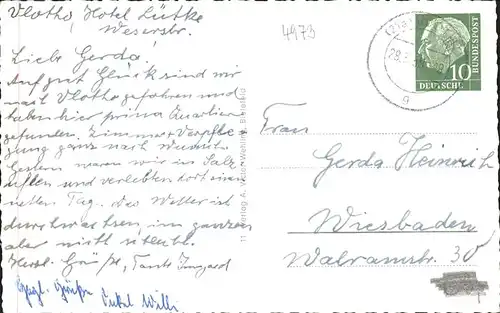 Vlotho, Hotel Lütke
Weserstr.
Liebe Gerda!
Auf gut Glück sind wir
nach Vlotho gefahren und
haben hier prima Quartier
gefunden. Zimmer + Verpfle
gung ganz nach Wunsch.
Gestern waren wir in Salz
uflen und verlebten dort einen
netten Tag. Das Wetter ist
durchwachsen, im ganzen
aber nicht schlecht.
Herzl. Grüße, Tante Irmgard
Herzl. Grüße Onkel Willi
4973
DEUTSCHE BUNDESPOST
10
Verlag A.
Bielefeld
Frau
Gerda Heinrich
Wiesbaden
Walramstr. 30